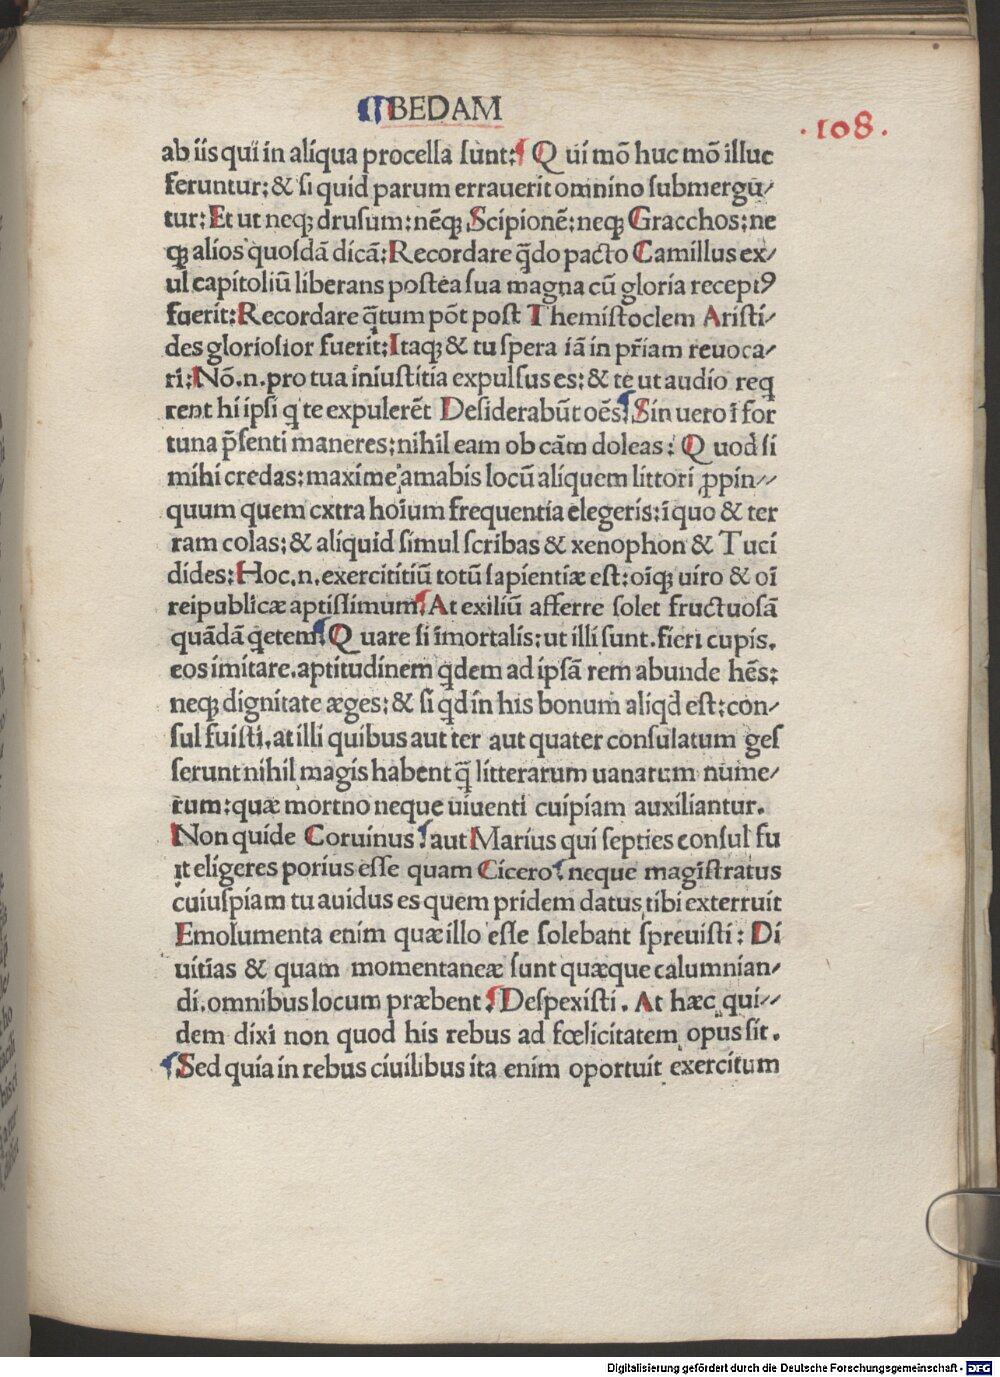 BEDAM
.108.
ab iis qui in aliqua procella ſunt: Q ui mõ huc mõ illuc
feruntur: & ſi quid parum errauerit omnino ſubmergũ⸗
tur: Et ut neqꝫ druſum: nẽqꝫ Scipionẽ: neqꝫ Gracchos: ne
qꝫ alios quoſdã dicã: Recordare q̃do pacto Camillus ex⸗
ul capitoliũ liberans poſtea ſua magna cũ gloria receptꝰ
fuerit: Recordare q̃tum põt poſt Themiſtoclem Ariſti⸗
des glorioſior fuerit: Itaqꝫ & tu ſpera iã in pr̃iam reuoca⸗
ri: Nõ.n.pro tua iniuſtitia expulſus es: & te ut audio req
rent hi ipſi q te expulerẽt Deſiderabũt oẽs: Sin uero ĩ for
tuna p̃ſenti maneres: nihil eam ob cãm doleas: Q uod ſi
mihi credas: maxime amabis locũ aliquem littori ꝓpin⸗
quum quem cxtra hoĩum frequentia elegeris: ĩ quo & ter
ram colas: & aliquid ſimul ſcribas & xenophon & Tuci
dides: Hoc.n.exercititiũ totũ ſapientiæ eſt: oĩqꝫ uiro & oĩ
reipublicæ aptiſſimum: At exiliũ afferre ſolet fructuoſã
quãdã qetem: Q uare ſi ĩmortalis: ut illi ſunt. fieri cupis.
eos imitare. aptitudinem qdem ad ipſã rem abunde hẽs:
neqꝫ dignitate æges: & ſi qd in his bonum aliqd eſt: con⸗
ſul fuiſti. at illi quibus aut ter aut quater conſulatum geſ
ſerunt nihil magis habent q̃ litterarum uanarum nume⸗
rum: quæ mortno neque uiuenti cuipiam auxiliantur.
Non quide Coruinus: aut Marius qui ſepties conſul fu
it eligeres porius eſſe quam Cicero: neque magiſtratus
cuiuſpiam tu auidus es quem pridem datus tibi exterruit
Emolumenta enim quæ illo eſſe ſolebant ſpreuiſti: Di
uitias & quam momentaneæ ſunt quæque calumnian⸗
di. omnibus locum præbent: Deſpexiſti. At hæc qui⸗
dem dixi non quod his rebus ad fœlicitatem opus ſit.
Sed quia in rebus ciuilibus ita enim oportuit exercitum
Digitalisierung gefördert durch die Deutsche Forschungsgemeinschaft - DFG